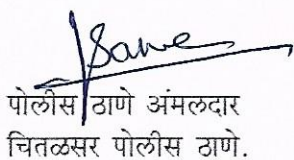 पोलीस ठाणे अंमलदार
चितळसर पोलीस ठाणे.